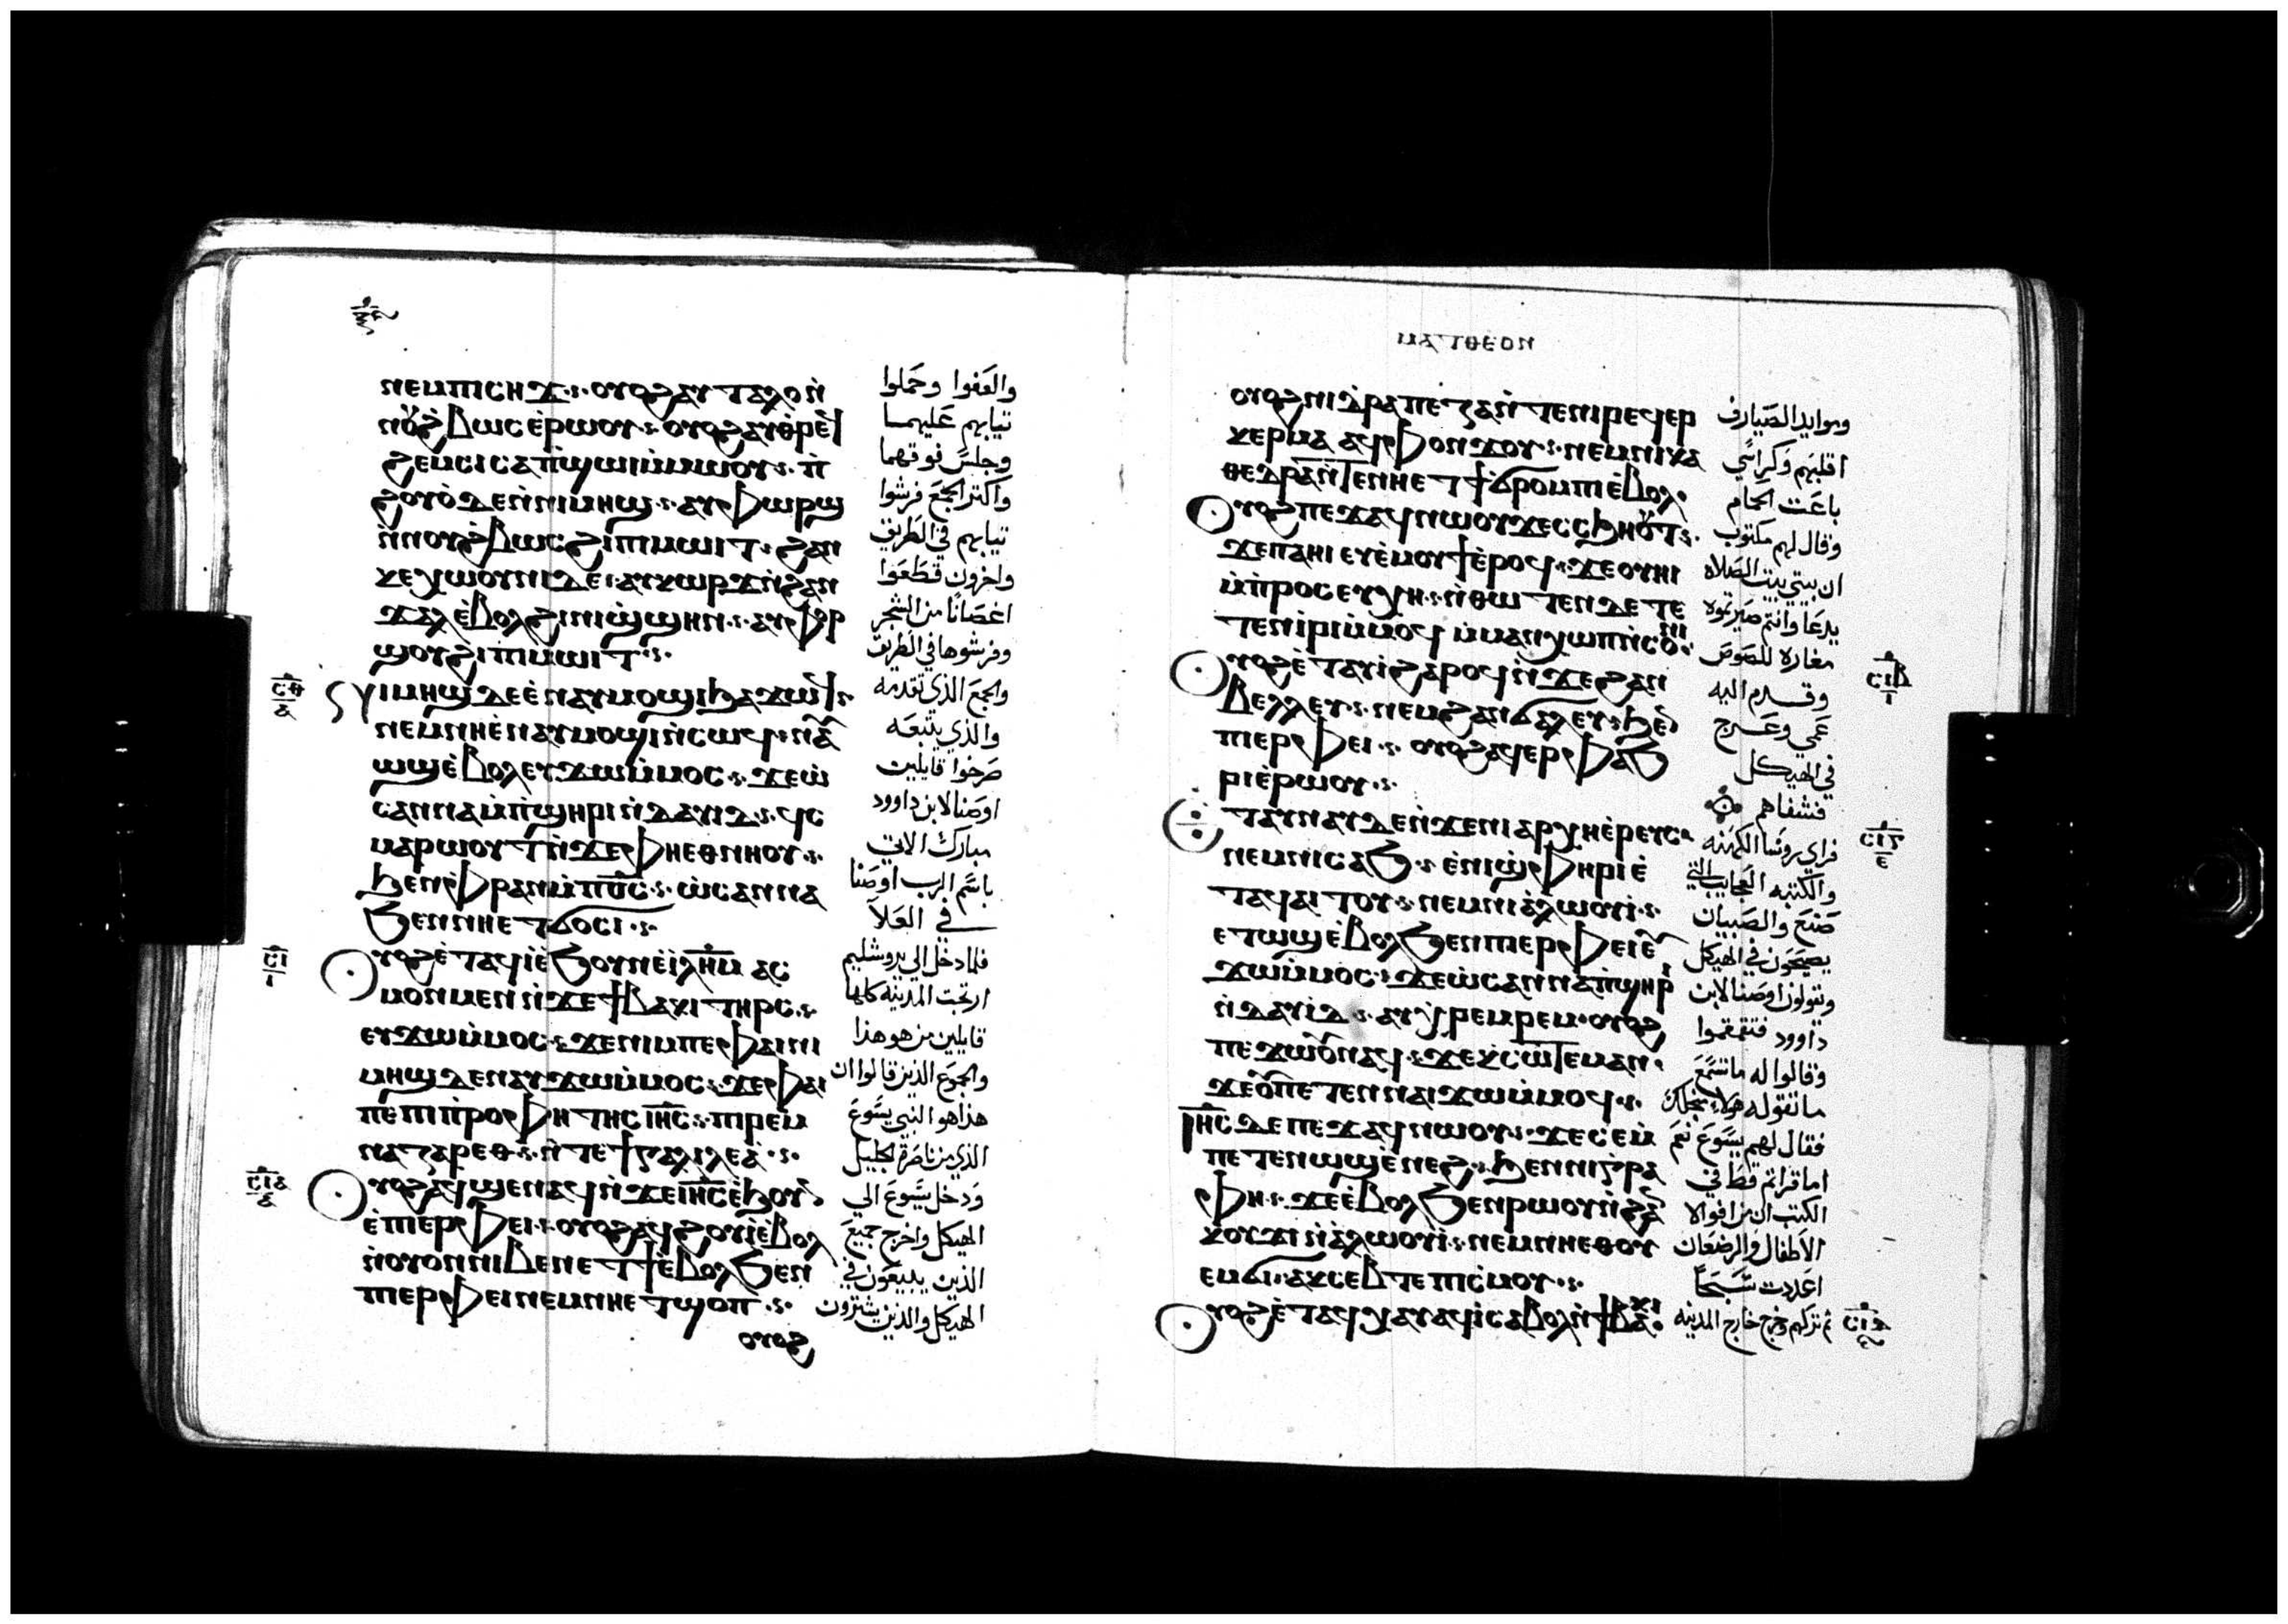 ⲛⲉⲙⲡⲓⲥⲏϫ· ⲟⲩⲟϩⲁⲩⲧⲁⲗⲟⲛ̀
ⲛⲟⲩϩ̀ⲃⲱⲥⲉ̀ⲣⲱⲟⲩ· ⲟⲩⲟϩⲁⲩⲑⲣⲉϥ
ϩⲉⲙⲥⲓⲥⲁⲡ̀ϣⲱⲓⲙ̀ⲙⲱⲟⲩ· ⲡ̀
ϩⲟⲩⲟ̀ⲇⲉⲛ̀ⲛⲓⲙⲏϣ· ⲁⲩⲫⲱⲣϣ
ⲛ̀ⲛⲟⲩϩ̀ⲃⲱⲥϩⲓⲡⲓⲙⲱⲓⲧ· ϩⲁⲛ
ⲕⲉⲭⲱⲟⲩⲛⲓⲇⲉ· ⲁⲩⲕⲱⲣϫⲛ̀ϩⲁⲛ
ϫⲁⲗⲉ̀ⲃⲟⲗϩⲓⲛⲓϣ̀ϣⲏⲛ· ⲁⲩⲫⲟⲣ
ϣⲟⲩϩⲓⲡⲓⲙⲱⲓⲧ·
ⲛⲓⲙⲏϣⲇⲉⲉ̀ⲛⲁⲩⲙⲟϣⲓϧⲁϫⲱϥ·
ⲛⲉⲙⲛⲏⲉ̀ⲛⲁⲩⲙⲟϣⲓⲛ̀ⲥⲱϥ· ⲛⲁⲩ
ⲱϣⲉ̀ⲃⲟⲗⲉⲩϫⲱⲙ̀ⲙⲟⲥ· ϫⲉⲱ̀
ⲥⲁⲛⲛⲁⲙ̀ⲡ̀ϣⲏⲣⲓⲛ̀ⲇⲁⲩⲓⲇ· ϥ̀ⲥ
ⲙⲁⲣⲱⲟⲩⲧⲛ̀ϫⲉⲫⲏⲉⲑⲛⲏⲟⲩ·
ϧⲉⲛⲫ̀ⲣⲁⲛⲙ̀ⲡ⳪· ⲱ̀ⲥⲁⲛⲛⲁ
ϧⲉⲛⲛⲏⲉⲧϭⲟⲥⲓ·
ⲟⲩⲟϩⲉ̀ⲧⲁϥⲓ̀ⲉ̀ϧⲟⲩⲛⲉ̀ⲓ̅ⲗ̅ⲏ̅ⲙ̅ ⲁⲥ
ⲙⲟⲛⲙⲉⲛⲛ̀ϫⲉϯⲃⲁⲕⲓⲧⲏⲣⲥ·
ⲉⲩϫⲱⲙ̀ⲙⲟⲥ· ϫⲉⲛⲓⲙⲡⲉⲫⲁⲓⲛⲓ
ⲙⲏϣⲇⲉⲛⲁⲩϫⲱⲙ̀ⲙⲟⲥ· ϫⲉⲫⲁⲓ
ⲡⲉⲡⲓⲡ̀ⲣⲟⲫⲏⲧⲏⲥ ⲓ̅ⲏ̅ⲥ̅· ⲡⲓⲣⲉⲙ
ⲛⲁⲍⲁⲣⲉⲑ· ⲛ̀ⲧⲉϯⲅⲁⲗⲓⲗⲉⲁ̀·
ⲟⲩⲟϩⲁϥϣⲉⲛⲁϥⲛ̀ϫⲉⲓ̅ⲏ̅ⲥ̅ⲉ̀ϧⲟⲩⲛ
ⲉ̀ⲡⲓⲉⲣⲫⲉⲓ· ⲟⲩⲟϩⲁϥϩⲓⲟⲩⲓ̀ⲉ̀ⲃⲟⲗ
ⲛ̀ⲟⲩⲟⲛⲛⲓⲃⲉⲛⲉⲧϯⲉ̀ⲃⲟⲗϧⲉⲛ
ⲡⲓⲉⲣⲫⲉⲓⲛⲉⲙⲛⲏⲉⲧϣⲟⲡ·
ⲟⲩⲟϩ
والعفوا وحملوا
ثيابهم عليهما
وجلس فوقهما
واكثر الجمع فرشوا
ثيابهم في الطريق
واخرون قطعوا
اغصانا من الشجر
وفرشوها في الطريق
والجمع الذي تقدمه
والذي يتبعه
صرخوا قايلين
اوصنا لابن داوود
مبارك الاتي
باسم الرب اوصنا
في العلا
فلما دخل الي يروشليم
ارتجت المدينه كلها
قايلين من هو هذا
والجموع الذين قالوا ان
هذا هو النبي يسوع
الذي من ناصرة الجليل
ودخل يسوع الي
الهيكل واخرج جميع
الذين يبيعون في
الهيكل والذين يشترون
ⲙⲁⲧⲑⲉⲟⲛ
ⲟⲩⲟϩⲛⲓⲧ̀ⲣⲁⲡⲉⲍⲁⲛ̀ⲧⲉⲛⲓⲣⲉϥⲉⲣ
ⲕⲉⲣⲙⲁ ⲁϥⲫⲟⲛϫⲟⲩ· ⲛⲉⲙⲛⲓⲕⲁ
ⲑⲉⲇⲣⲁⲛ̀ⲧⲉⲛⲏⲉⲧϯϭⲣⲟⲙⲡⲓⲉ̀ⲃⲟⲗ·
ⲟⲩⲟϩⲡⲉϫⲁϥⲛⲱⲟⲩϫⲉⲥⲥϧⲏⲟⲩⲧ·
ϫⲉⲡⲁⲏⲓ ⲉⲩⲉ̀ⲙⲟⲩϯⲉ̀ⲣⲟϥ· ϫⲉⲟⲩⲏⲓ
ⲙ̀ⲡ̀ⲣⲟⲥⲉⲩⲭⲏ· ⲛ̀ⲑⲱⲧⲉⲛⲇⲉⲧⲉ
ⲧⲉⲛⲓ̀ⲣⲓⲙ̀ⲙⲟϥ ⲙ̀ⲙⲁⲛⲭⲱⲡⲛ̀ⲥⲟⲛⲓ·
ⲟⲩⲟϩⲉ̀ⲧⲁⲩⲓ̀ϩⲁⲣⲟϥⲛ̀ϫⲉϩⲁⲛ
ⲃⲉⲗⲗⲉⲩ· ⲛⲉⲙϩⲁⲛϭⲁⲗⲉⲩ· ϧⲉⲛ
ⲡⲓⲉⲣⲫⲉⲓ· ⲟⲩⲟϩⲁϥⲉⲣⲫⲁϧ
ⲣⲓⲉ̀ⲣⲱⲟⲩ·
ⲉⲧⲁⲩⲛⲁⲩⲇⲉⲛ̀ϫⲉⲛⲓⲁⲣⲭⲏⲉ̀ⲣⲉⲩⲥ
ⲛⲉⲙⲛⲓⲥⲁϧ· ⲉ̀ⲛⲓϣ̀ⲫⲏⲣⲓⲉ̀
ⲧⲁϥⲁⲓⲧⲟⲩ· ⲛⲉⲙⲛⲓⲁ̀ⲗⲱⲟⲩⲓ̀·
ⲉⲧⲱϣⲉ̀ⲃⲟⲗϧⲉⲛⲡⲓⲉⲣⲫⲉⲓⲉⲩ
ϫⲱⲙ̀ⲙⲟⲥ· ϫⲉⲱ̀ⲥⲁⲛⲛⲁⲡ̀ϣⲏⲣⲓ
ⲛ̀ⲇⲁⲩⲓⲇ· ⲁⲩⲭ̀ⲣⲉⲙⲣⲉⲙ· ⲟⲩⲟϩ
ⲡⲉϫⲱⲟⲩⲛⲁϥ· ϫⲉⲕ̀ⲥⲱⲧⲉⲙⲁⲛ·
ϫⲉⲟⲩⲡⲉⲧⲉⲛⲁⲓϫⲱⲙ̀ⲙⲟϥ·
ⲓ̅ⲏ̅ⲥ̅ ⲇⲉⲡⲉϫⲁϥⲛⲱⲟⲩ· ϫⲉⲥⲉⲙ̀
ⲡⲉⲧⲉⲛⲱϣⲉ̀ⲛⲉϩ· ϧⲉⲛⲛⲓⲅ̀ⲣⲁ
ⲫⲏ· ϫⲉⲉ̀ⲃⲟⲗϧⲉⲛⲣⲱⲟⲩⲛ̀ϩⲁⲛ
ⲕⲟⲩϫⲓⲛ̀ⲁ̀ⲗⲱⲟⲩⲓ̀· ⲛⲉⲙⲛⲏⲉⲑⲟⲩ
ⲉⲙϭⲓ· ⲁⲕⲥⲉⲃⲧⲉⲡⲓⲥ̀ⲙⲟⲩ·
ⲟⲩⲟϩⲉ̀ⲧⲁϥⲭⲁⲩ ⲁϥⲓ̀ⲥⲁⲃⲟⲗⲛ̀ϯⲃⲁⲕⲓ
وموايد الصيارف
اقلبهم وكراسي
باعت الحمام
وقال لهم مكتوب
ان بيتي بيت الصلاه
يدعا وانتم صيرتموه
مغاره للصوص
وقدم اليه
عمي وعرج
في الهيكل
فشفاهم
فراي روسا الكهنه
والكتبه العجايب التي
صنع والصبيان
يصيحون في الهيكل
ويقولون اوصنا لابن
داوود فتقمقموا
وقالوا له ما تسمع
ما تقوله هولاء
فقال لهم يسوع نعم
اما قراتم قط في
الكتب ان من افواه
الاطفال والرضعان
اعددت سبحا
ثم تركهم وخرج خارج المدينه